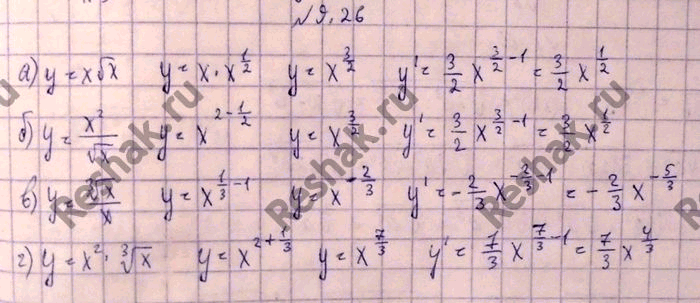 №9.26
а) y = x√x y = x · x^{1/2} y = x^{3/2} y' = 3/2 x^{3/2 - 1} = 3/2 x^{1/2}
б) y = x²/√x y = x^{2 - 1/2} y = x^{3/2} y' = 3/2 x^{3/2 - 1} = 3/2 x^{1/2}
в) y = ∛x/x y = x^{1/3 - 1} y = x^{-2/3} y' = -2/3 x^{-2/3 - 1} = -2/3 x^{-5/3}
г) y = x² · ∛x y = x^{2 + 1/3} y = x^{7/3} y' = 7/3 x^{7/3 - 1} = 7/3 x^{4/3}
Reshak.ru
Reshak.ru
Reshak.ru